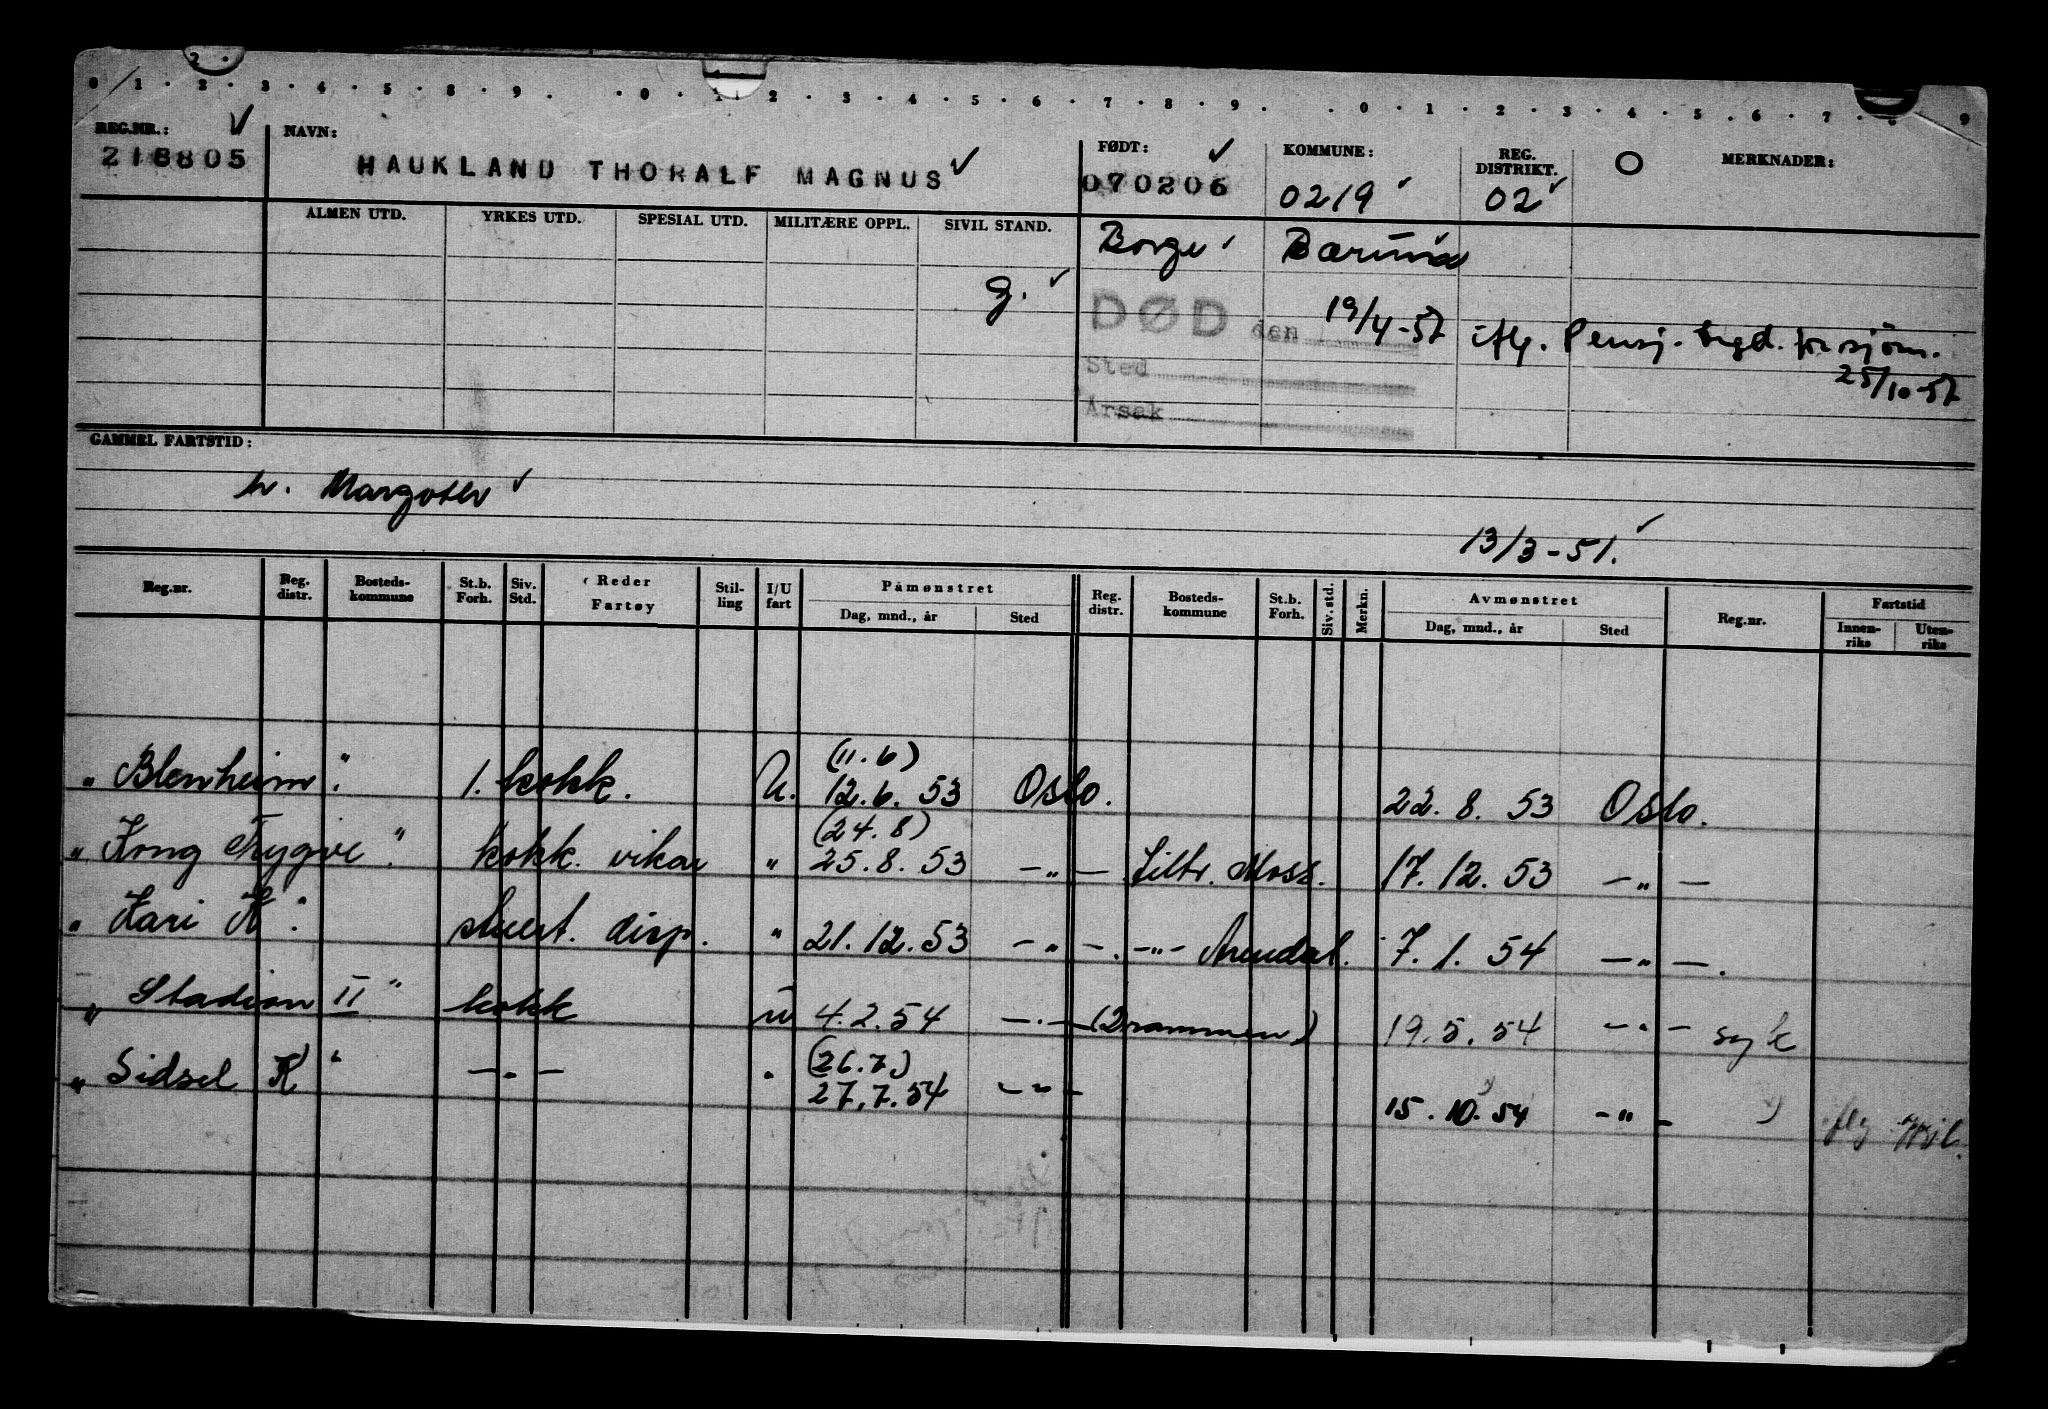 0 1 · 2 · 3 · 4 · 5 · 8 · 9 · · 0 · 1 · 2 · 3 · 4 · 5 · 6 · 7 · 8 · 9 · · 0 · 1 · 2 · 3 · 4 · 5 · 6 · 7 · 9
REG.NR.: NAVN: FØDT: KOMMUNE: REG. DISTRIKT. O MERKNADER:
218805 HAUKLAND THORALF MAGNUS 070206 0219 02
ALMEN UTD. YRKES UTD. SPESIAL UTD. MILITÆRE OPPL. SIVIL STAND. Borge Bærum
g. DØD den 19/4-57 iflg. Pensj. trygd. for sjøm.
Sted 25/10-57
Årsak
GAMMEL FARTSTID:
h. Margoth
13/3-51.
Reg.nr. Reg. distr. Bosteds-kommune St.b. Forh. Siv. Std. Reder Fartøy Stil-ling I/U fart Påmønstret Reg. distr. Bosteds-kommune St.b. Forh. Siv. std. Merkn. Avmønstret Reg.nr. Fartstid
Dag, mnd., år Sted Dag, mnd., år Sted Innen-riks Uten-riks
(11.6)
"Blenheim". 1. kokk. U. 12.6.53 Oslo. 22.8.53 Oslo.
(24.8)
"Kong Trygve". kokk. vikar " 25.8.53 -"- Filtr. Moss. 17.12.53 -"-
"Kari K". stuert. disp. " 21.12.53 -"-. -"- Arendal. 7.1.54 -"-.
"Stadion II" kokk u 4.2.54 -"- (Drammen) 19.5.54 -"- syk
(26.7)
"Sidsel K" -"- " 27.7.54 -"- 15.10.54 -"-